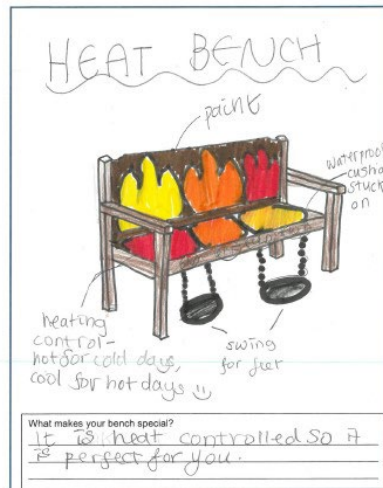 HEAT BENCH
paint
waterproof
cushi
stuck
on
heating
control-
hot for cold days,
cool for hot days
swing
for feet
What makes your bench special?
It is heat controlled so it
is perfect for you.